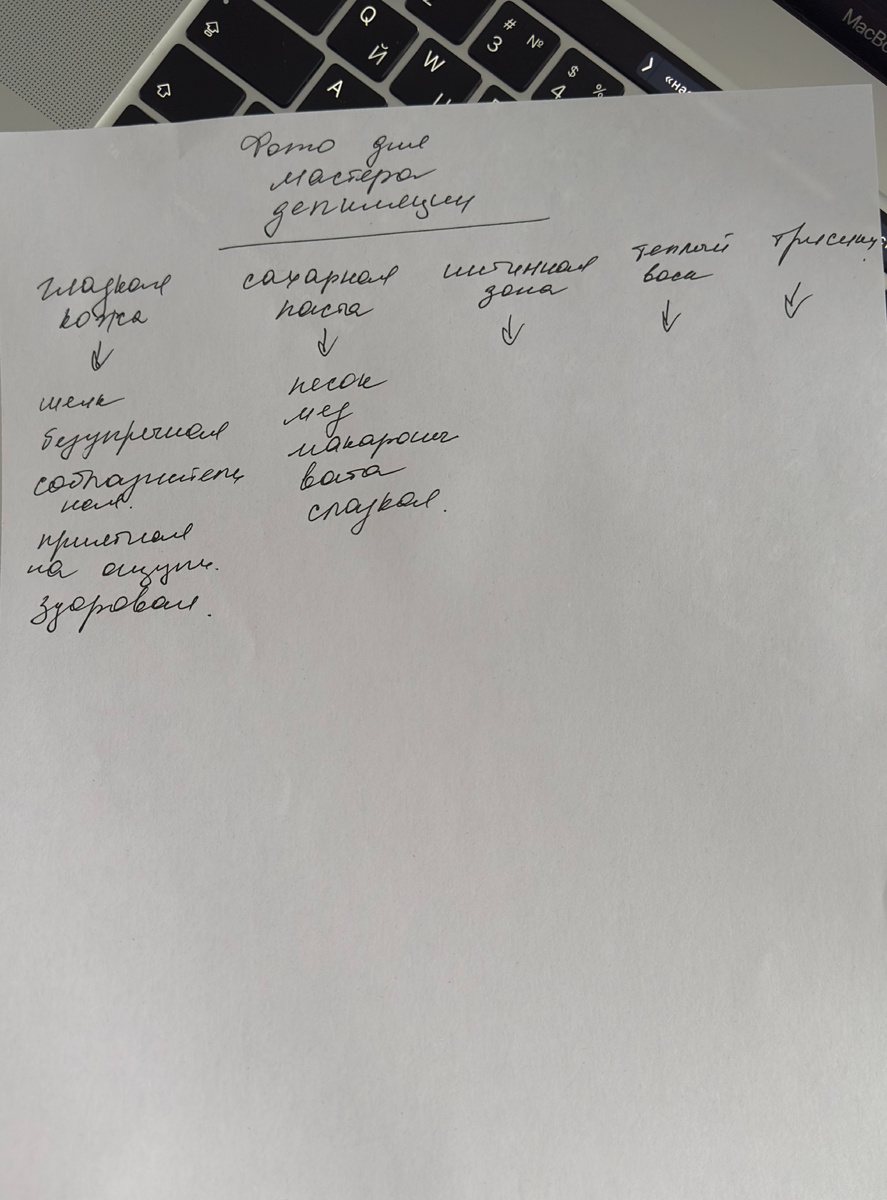 Q
Й
W
#
3
№
$
4
%
A
«на
MacBo
Фото для
мастера
депиляции
гладкая
кожа
шелк
безупречная
соблазнитель
ная.
приятная
на ощупь.
здоровая.
сахарная
паста
песок
мед
макароны
вата
сладкая.
интимная
зона
теплый
воск